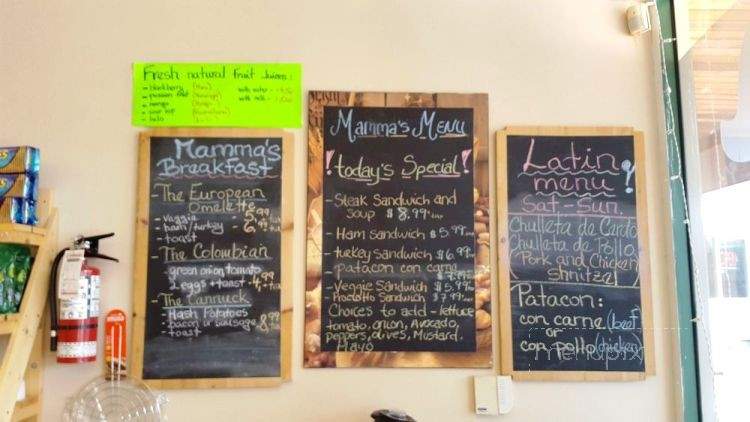 Fresh natural fruit Juices:
- blackberry (Mora)
- passion fruit
- mango
- sour sop
- lulo
with water -
with milk -
Mamma's
Breakfast
- The European
Omelette
- veggie - 5.99 +tax
- ham/turkey - 6.99 +tax
- toast
- The Colombian
green onion tomato
2 eggs + toast - 4.99 +tax
- The Cannuck
Hash Potatoes
- bacon or sausage 8.99
- toast
Mamma's Menu
! today's Special !
- Steak Sandwich and
Soup $ 8.99 +tax
- Ham sandwich $ 5.99 +tax
- turkey sandwich $ 6.99
- patacon con carne
- Veggie Sandwich $ 5.99
- Prociotto Sandwich $ 7.99
Choices to add - lettuce
tomato, onion, Avocado,
peppers, olives, Mustard.
Mayo
Latin
menu !
Sat. - Sun.
Chulleta de Cerdo
chulleta de Pollo
(Pork and Chicken
Shnitzel)
Patacon:
con carne (beef)
or
con pollo (chicken)
menupix